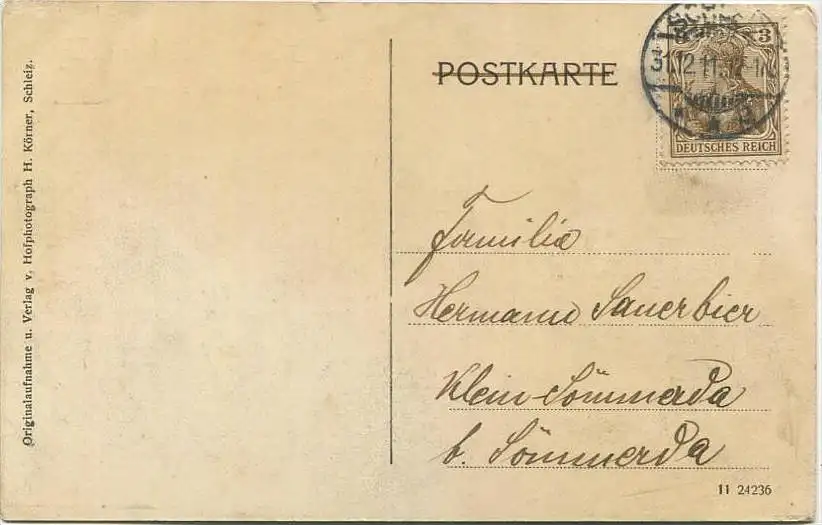 POSTKARTE
3
31.12.11.
DEUTSCHES REICH
Originalaufnahme u. Verlag v. Hofphotograph H. Körner, Schleiz.
Familie
Hermann Sauerbier
Klein-Sömmerda
b. Sömmerda
11 24236